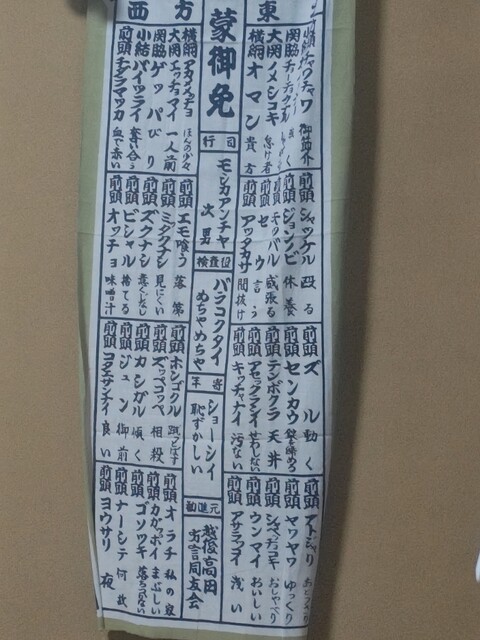 東
前頭 チャワチャワ 御節介
小結
関脇
大関 ノメシコキ 怠け者
横綱 オマン 貴方
前頭 シャッケル 殴る
前頭 ジョンノビ 休養
前頭 威張る
前頭 セウ 言う
前頭 アッタカサ 間抜け
前頭 ズル 動く
前頭 センカウ 錠を締める
前頭 テンボクラ 天井
前頭 アセックラシイ せわしない
前頭 キッチャナイ 汚ない
前頭 アトジャリ
前頭 ヤワヤワ ゆっくり
前頭 シャベッチョコキ おしゃべり
前頭 ウンマイ おいしい
前頭 アサラッコイ 浅い
蒙御免
行司
モシカアンチャ
次男
検査役
バラコクタイ
めちゃめちゃ
年寄
ショーシイ
恥ずかしい
勧進元
越後高田
方言同友会
西方
横綱 アカメッチョ ほんの少々
大関 エッチョマイ 一人前
関脇 ゲッパ びり
小結 バイッツライ 奪い合う
前頭 チダラマッカ 血で赤い
前頭 エモ喰う 落第
前頭 ミダクナシ 見にくい
前頭 ズクナシ
前頭 ビシャル 捨てる
前頭 オッチョ 味噌汁
前頭 ホンゴクル
前頭 ズッペコッペ 相殺
前頭 カシガル 傾く
前頭 ジュン 御前
前頭 コタエサンナイ 良い
前頭 オラチ 私の家
前頭 カガッポイ まぶしい
前頭 ゴソツキ 落ちつかない
前頭 ナーシテ 何故
前頭 ヨウサリ 夜